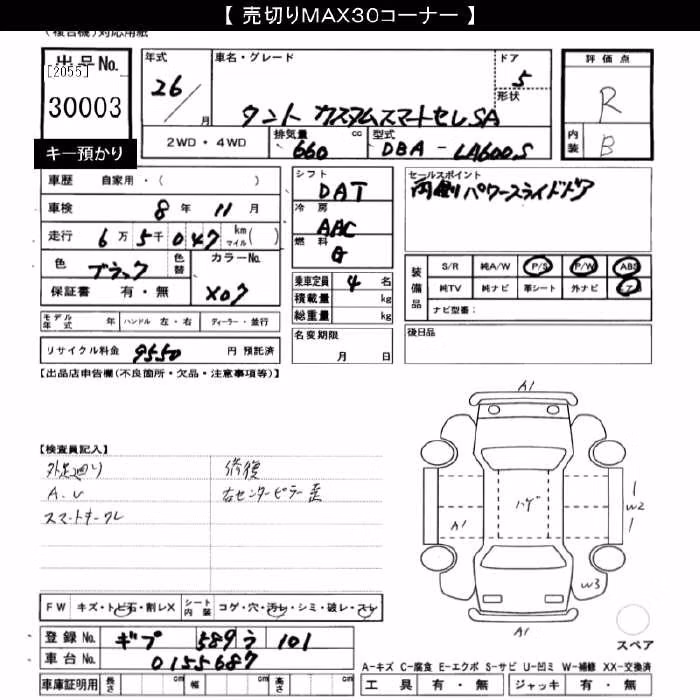 【 売切りMAX30コーナー 】
(複合機)対応用紙
出品No.
[2055]
30003
キー預かり
年式
26/
月
車名・グレード
タント カスタムスマートセレSA
ドア
5
形状
2WD・4WD
排気量
660
cc
型式
DBA-LA600S
評価点
R
内装
B
車歴 自家用・( )
車検 8年 11月
走行 6万 5千 047 km マイル( )
色 ブラック 色替
カラーNo.
X07
保証書 有・無
モデル年式 年 ハンドル 左・右 ディーラー・並行
リサイクル料金 9550 円 預託済
シフト
DAT
冷房
AAC
燃料
G
乗車定員 4 名
積載量 kg
総重量 kg
名変期限
月 日
セールスポイント
両側パワースライドドア
装備品
S/R 純A/W P/S P/W ABS
純TV 純ナビ 革シート 外ナビ エアB
ナビ型番:
後日品
【出品店申告欄(不良箇所・欠品・注意事項等)】
【検査員記入】
外足廻り
A.U
スマートキークレ
修復
右センターピラー歪
A1
ハゲ
A1
W2
W3
A1
スペア
FW キズ・トビ石・割レX
シート内装 コゲ・穴・汚レ・シミ・破レ・スレ
登録No. ギフ 589 う 101
車台No. 0155687
車庫証明用 長さ cm 幅 cm 高さ cm
A-キズ C-腐食 E-エクボ S-サビ U-凹ミ W-補修 XX-交換済
工具 有・無 ジャッキ 有・無